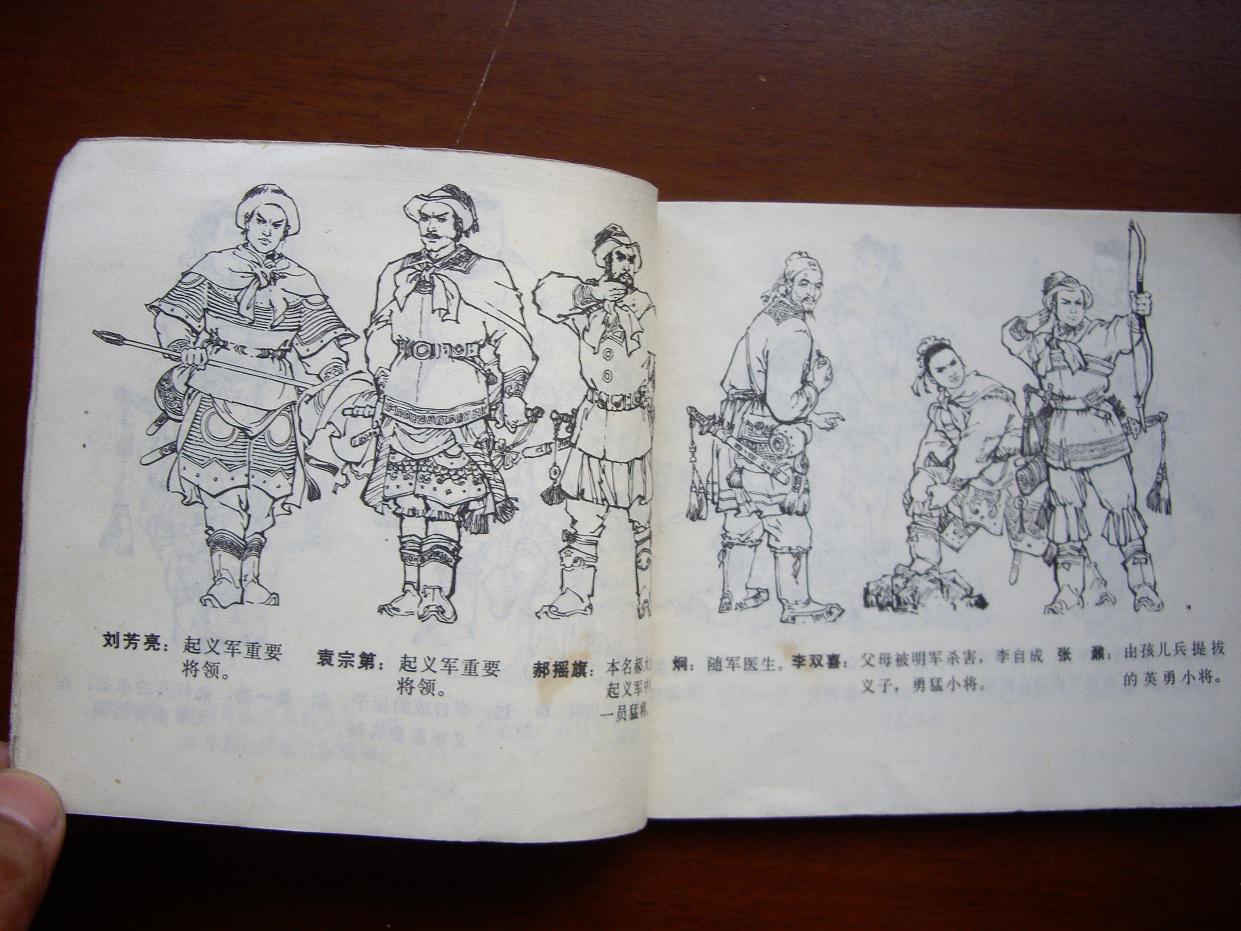 刘芳亮：起义军重要
将领。
袁宗第：起义军重要
将领。
郝摇旗：本名郝大
起义军中
一员猛将
炯：随军医生。
李双喜：父母被明军杀害，李自成
义子，勇猛小将。
张鼐：由孩儿兵提拔
的英勇小将。